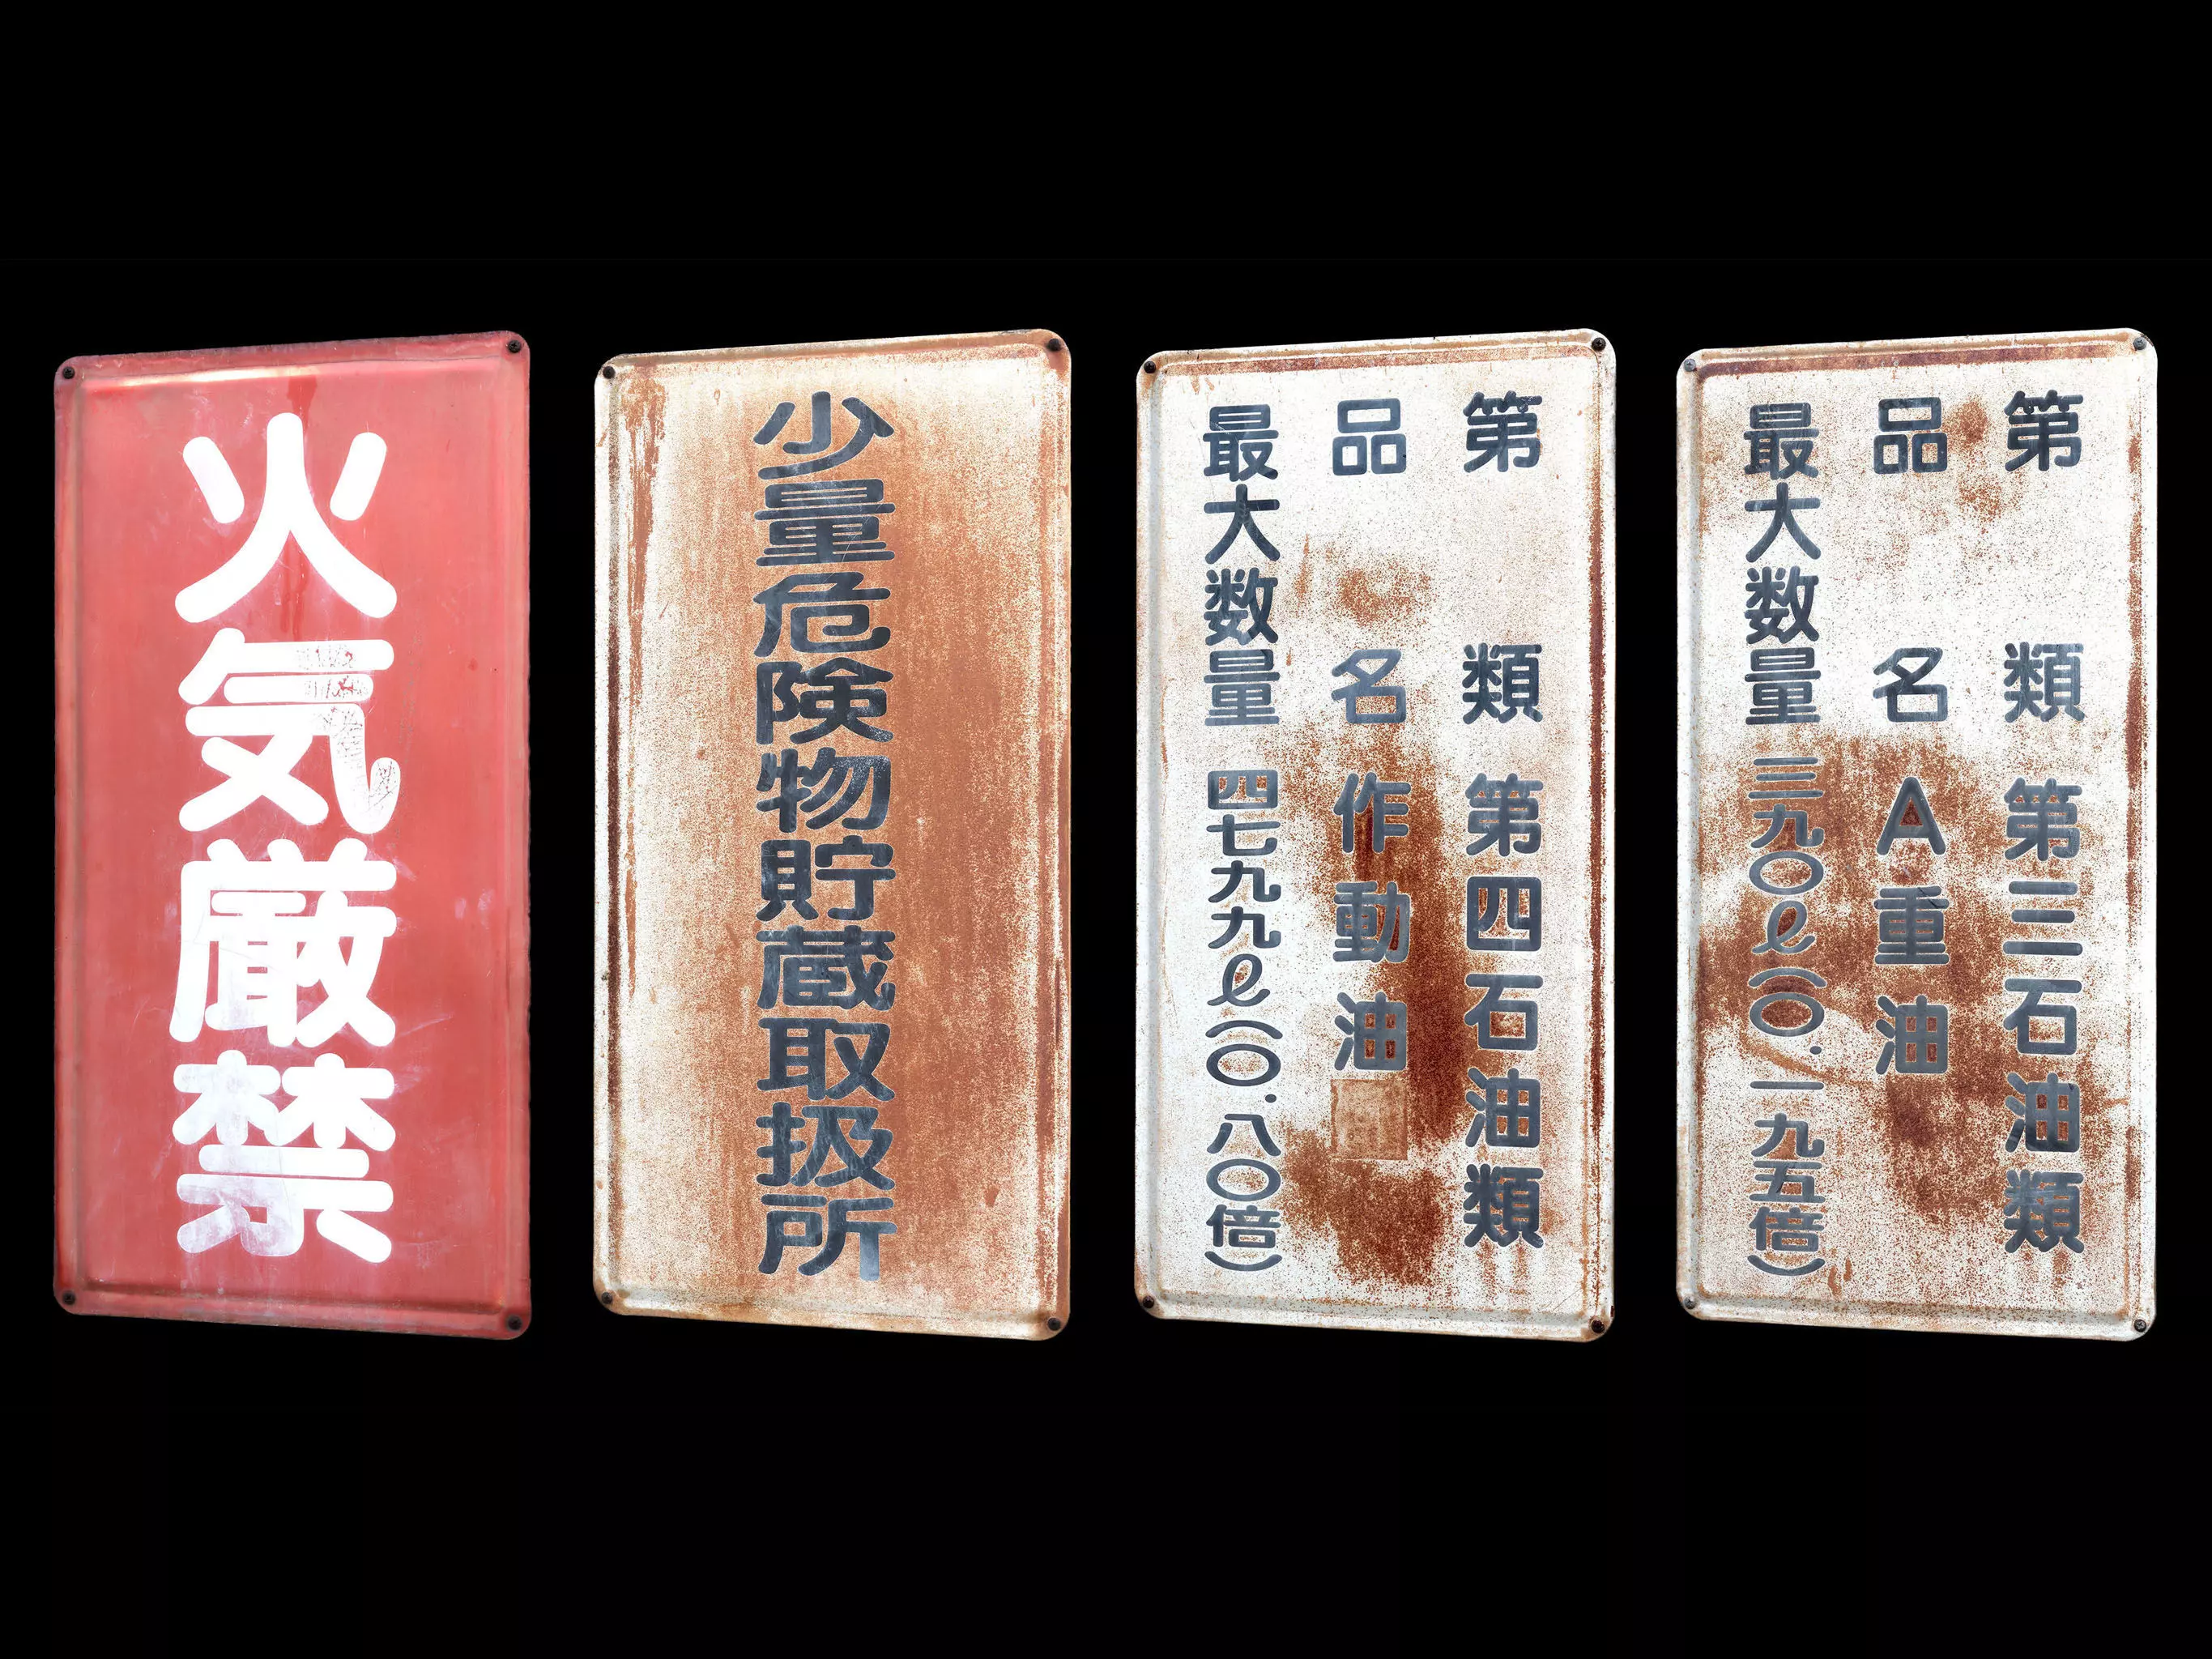 火気厳禁
少量危険物貯蔵取扱所
第 類 第四石油類
品 名 作動油
最大数量 四七九九ℓ(〇.八〇倍)
第 類 第三石油類
品 名 A重油
最大数量 三九〇ℓ(〇.一九五倍)